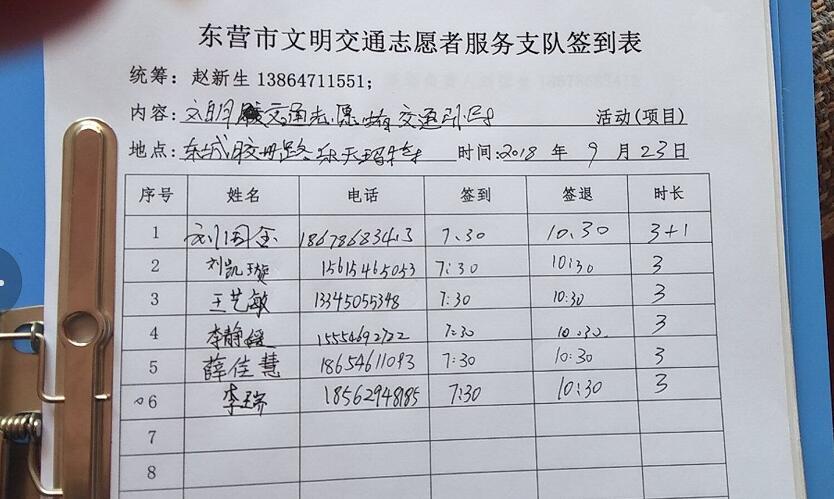 东营市文明交通志愿者服务支队签到表
统筹：赵新生 13864711551；
内容：文明交通志愿者交通引导 活动(项目)
地点：东城胶州路乐天玛特 时间：2018 年 9 月 23 日
序号 姓名 电话 签到 签退 时长
1 刘国金 18678683413 7:30 10:30 3+1
2 刘凯璇 15615465053 7:30 10:30 3
3 王艺敏 13345055348 7:30 10:30 3
4 李静 15554692722 7:30 10:30 3
5 薛佳慧 18654611093 7:30 10:30 3
6 李瑞 18562948185 7:30 10:30 3
7
8